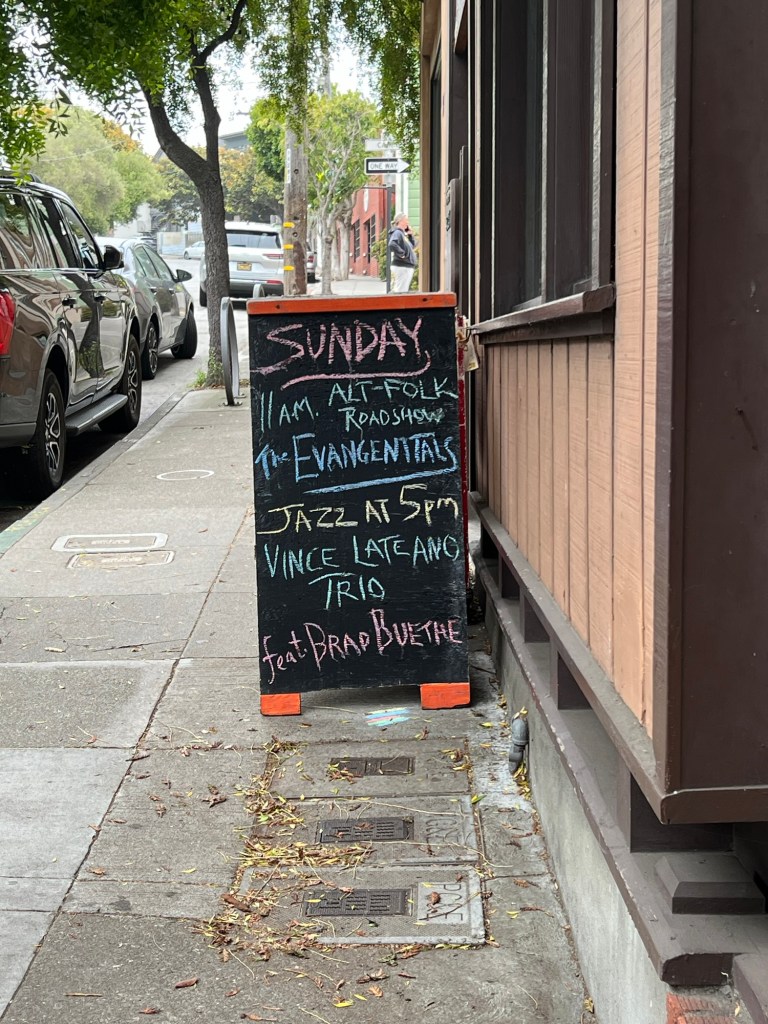 ONE WAY
SUNDAY
11 A.M. ALT-FOLK
ROADSHOW
THE EVANGENITALS
JAZZ AT 5pm
VINCE LATEANO
TRIO
feat. BRAD BUETHE
PG&E